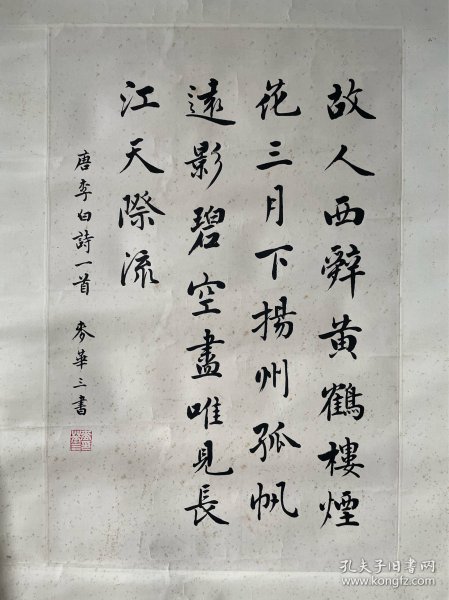 故人西辭黄鶴樓煙
花三月下揚州孤帆
遠影碧空盡唯見長
江天際流
唐李白詩一首 麥華三書
孔夫子旧书网
www.kongfz.com